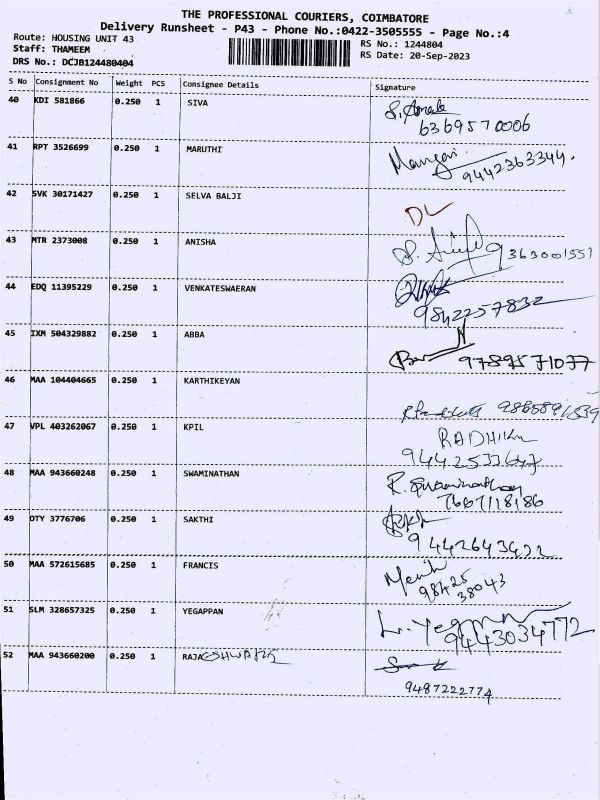 THE PROFESSIONAL COURIERS, COIMBATORE
Delivery Runsheet - P43 - Phone No.:0422-3505555 - Page No.:4
Route: HOUSING UNIT 43
RS No.: 1244804
Staff: THAMEEM
RS Date: 20-Sep-2023
DRS No.: DCJB124480404
S No Consignment No Weight PCS Consignee Details Signature
40 KDI 581866 0.250 1 SIVA
6369570006
41 RPT 3526699 0.250 1 MARUTHI
9442363344.
42 SVK 30171427 0.250 1 SELVA BALJI DL
43 MTR 2373008 0.250 1 ANISHA
9363001551
44 EDQ 11395229 0.250 1 VENKATESWAERAN
9842257832
45 IXM 504329882 0.250 1 ABBA
9789571077
46 MAA 104404665 0.250 1 KARTHIKEYAN
47 VPL 403262067 0.250 1 KPIL RADHIKA
48 MAA 943660248 0.250 1 SWAMINATHAN R. Swaminathan
7667118186
49 OTY 3776706 0.250 1 SAKTHI
9442643422
50 MAA 572615685 0.250 1 FRANCIS
98425
38043
51 SLM 328657325 0.250 1 YEGAPPAN
9443034772
52 MAA 943660200 0.250 1 RAJA
9487222774